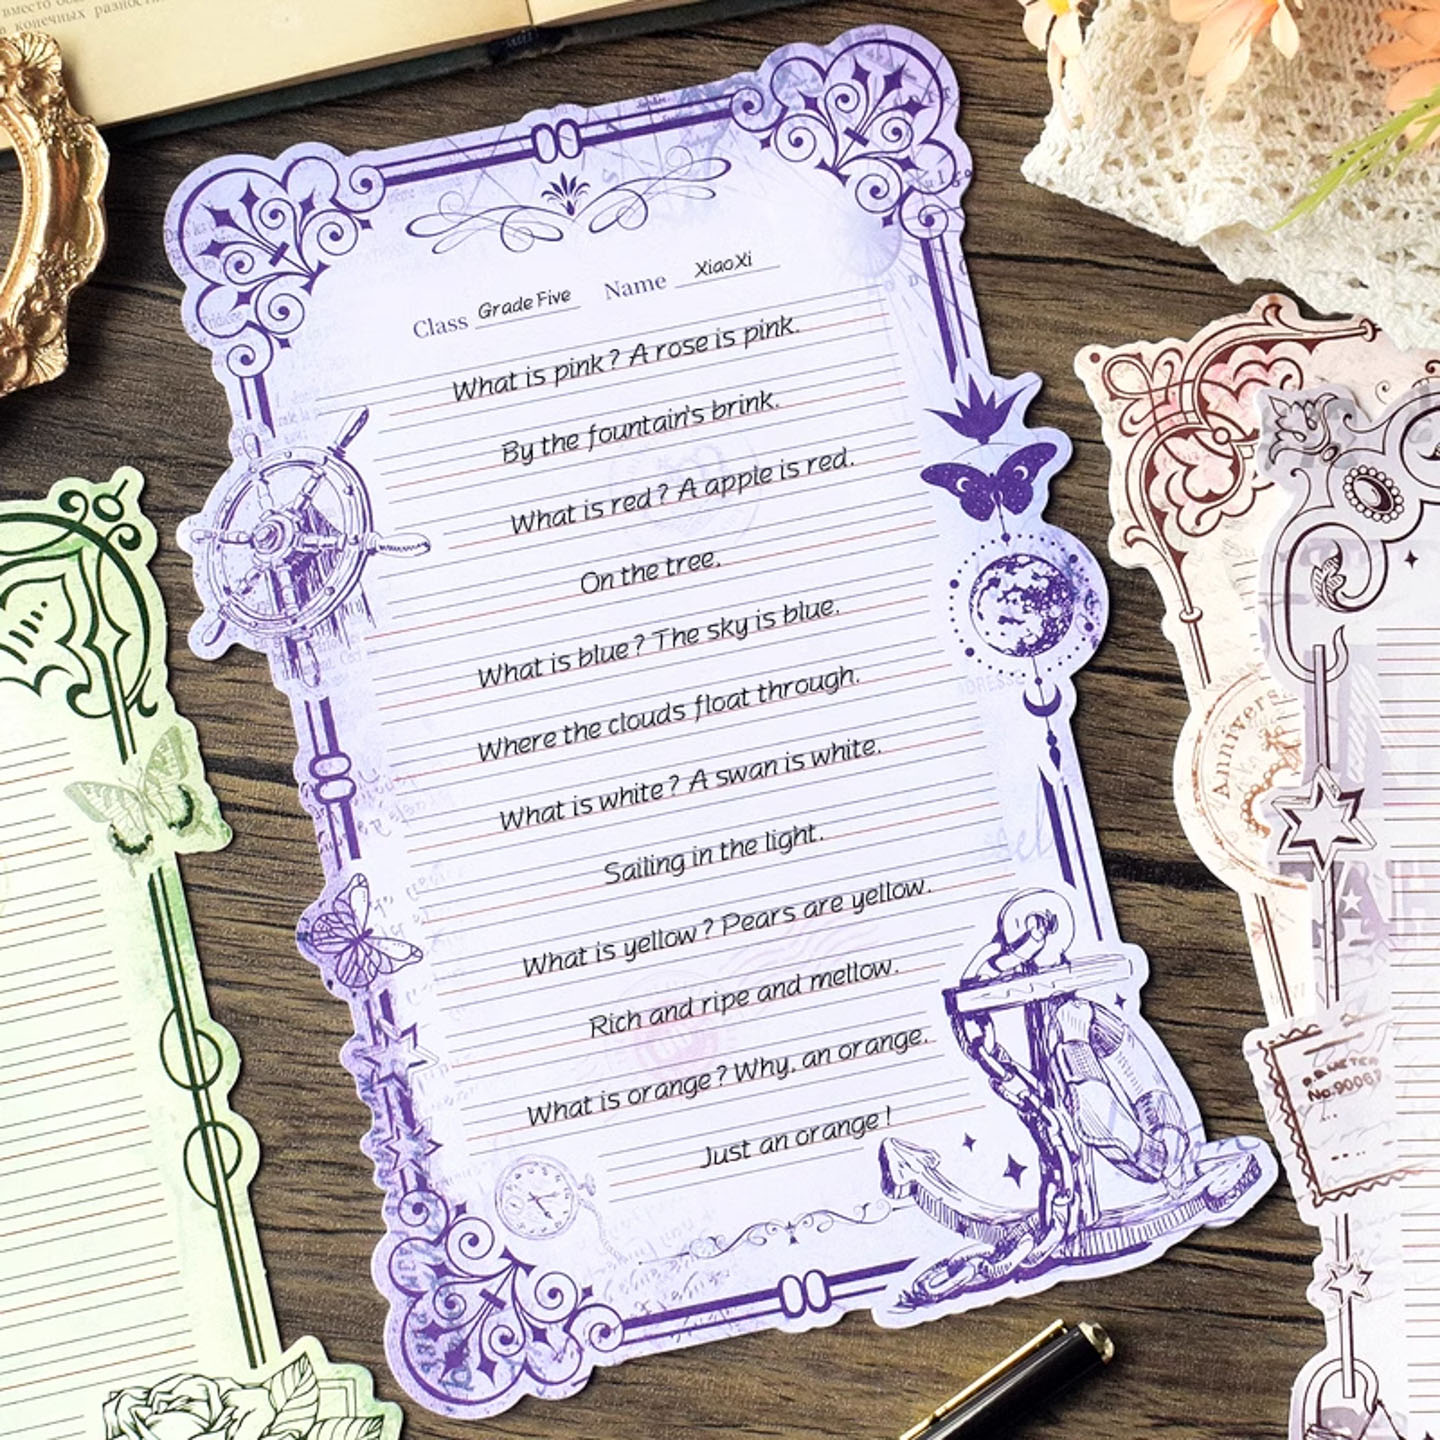 вместо
конечных разносте
Class Grade Five Name XiaoXi
What is pink? A rose is pink.
By the fountain's brink.
What is red? A apple is red.
On the tree.
What is blue? The sky is blue.
Where the clouds float through.
What is white? A swan is white.
Sailing in the light.
What is yellow? Pears are yellow.
Rich and ripe and mellow.
What is orange? Why, an orange.
Just an orange!
Annivers
No.9006